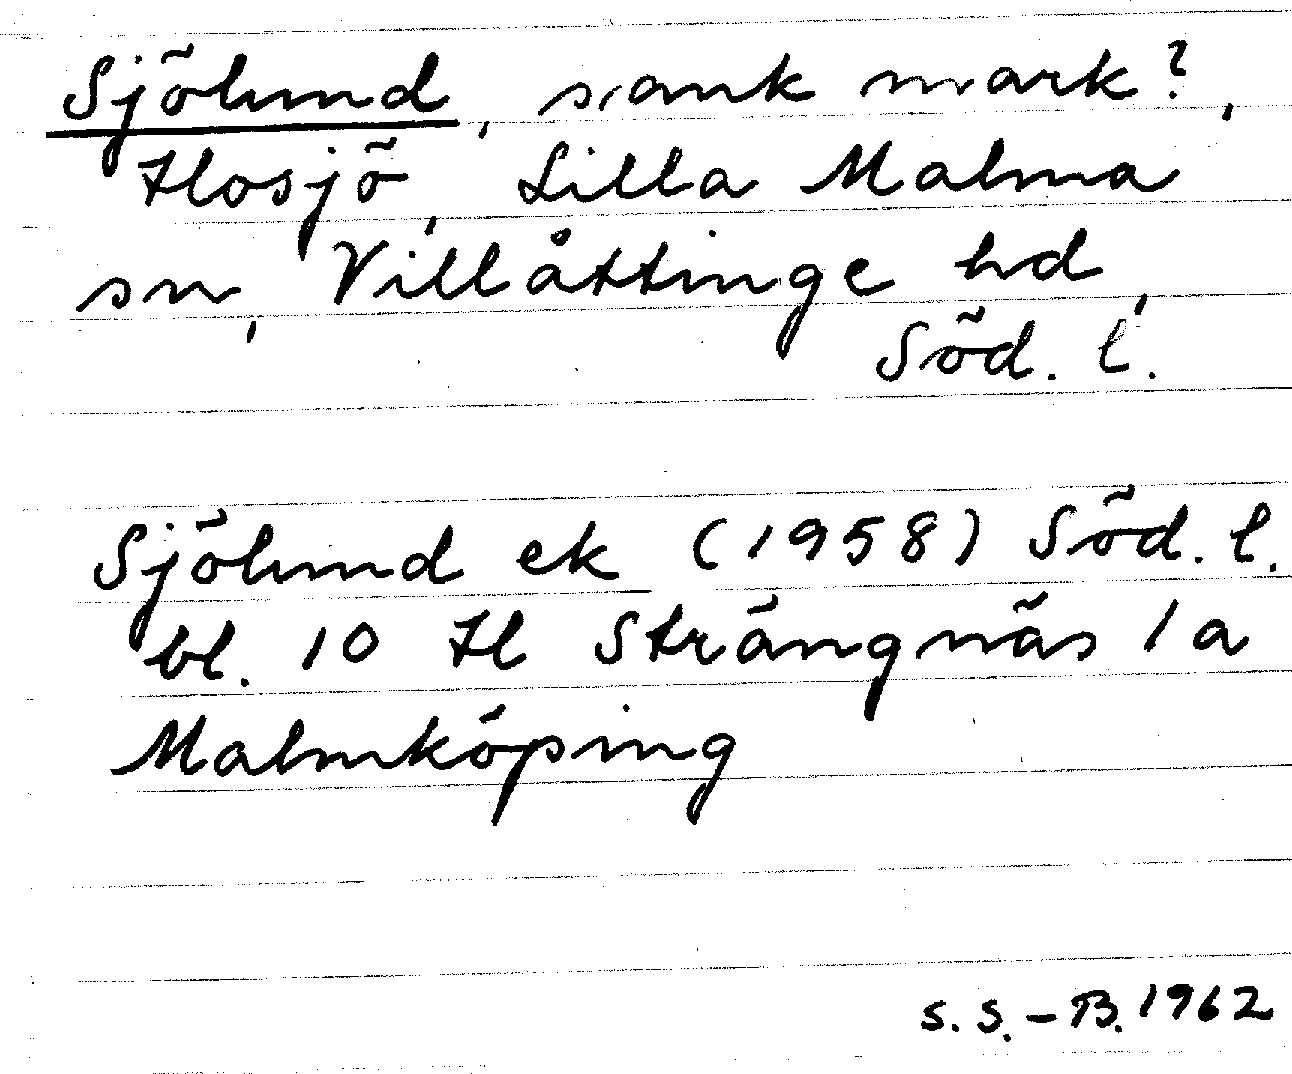 Sjölund, sank mark?,
Hosjö, Lilla Malma
sn, Villåttinge hd,
Söd. l.
Sjölund ek (1958) Söd. l.
bl. 10 H Strängnäs 1 a
Malmköping
S. S. - B. 1962